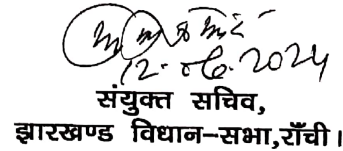 12.06.2024
संयुक्त सचिव,
झारखण्ड विधान-सभा,राँची।